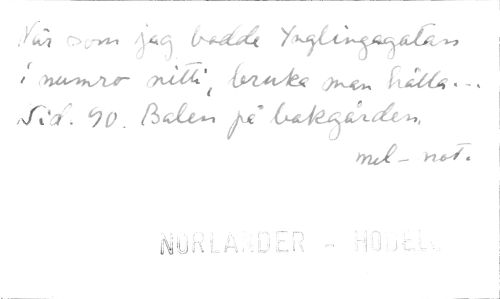 När som jag bodde Ynglingagatan
i numro nitti, bruka man hålla...
Sid. 90. Balen på bakgården.
mel - not.
NORLANDER - HODELL